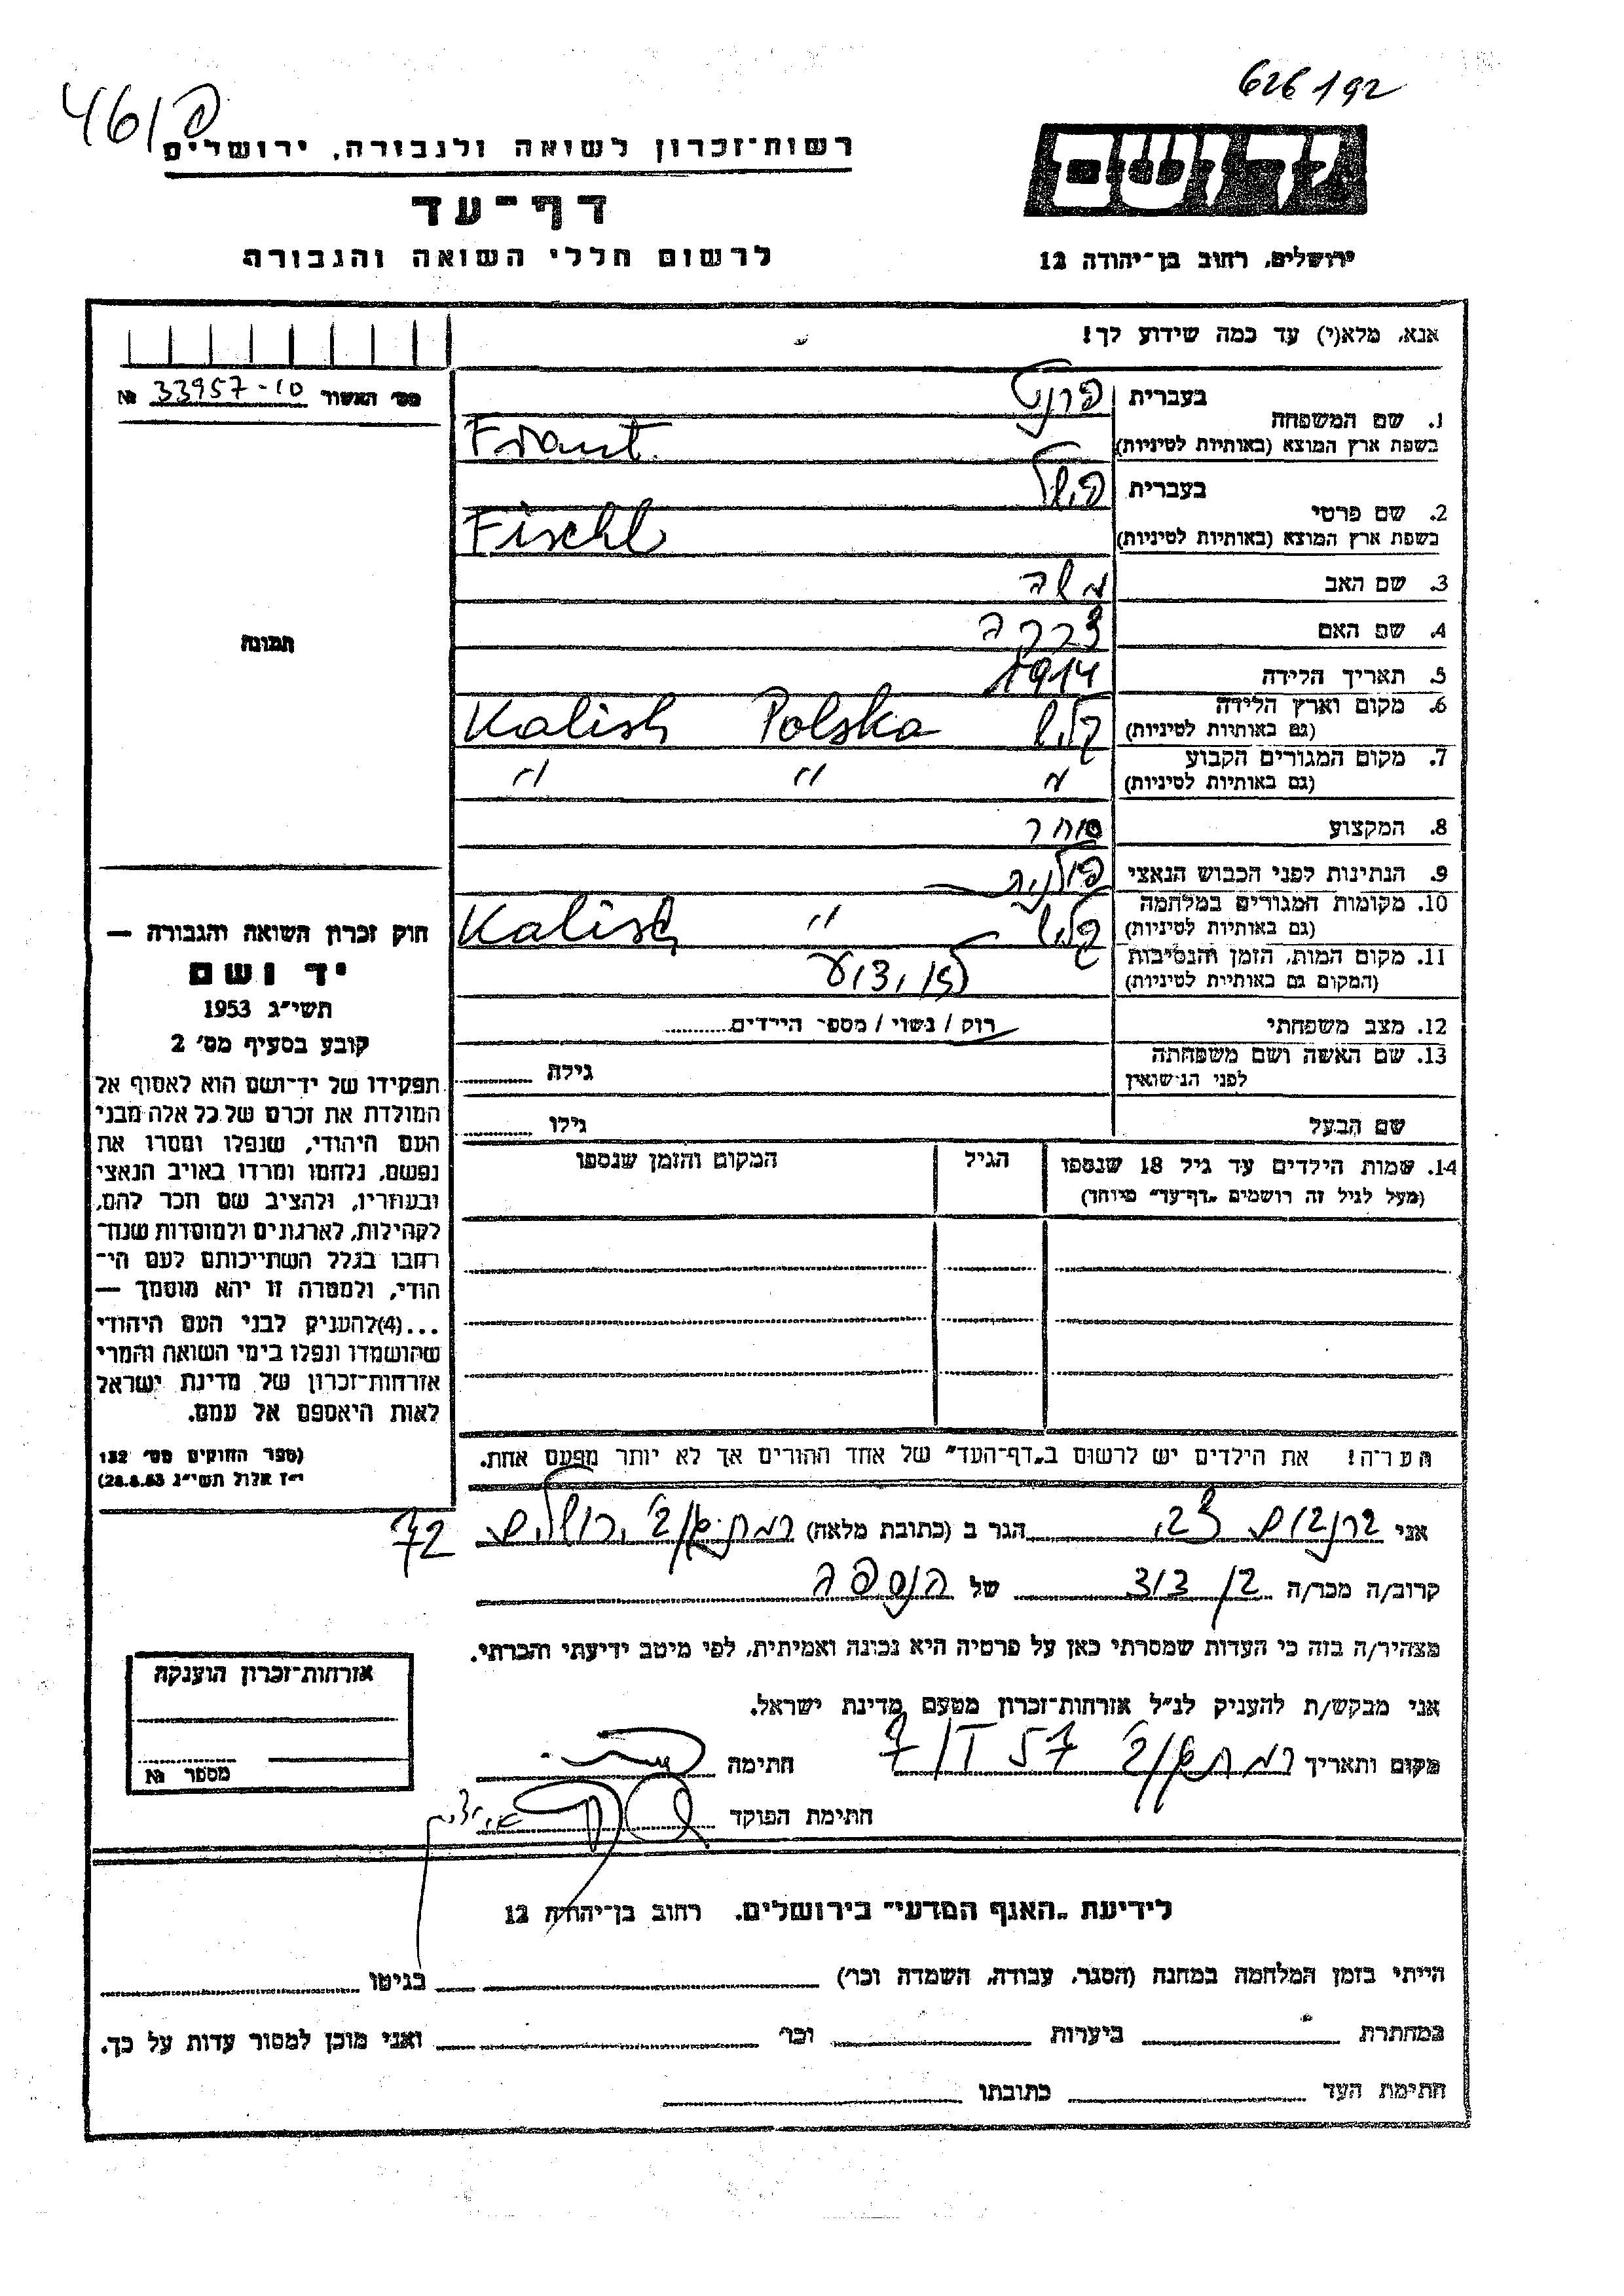 626192
461פ
יד ושם
רשות-זכרון לשואה ולגבורה, ירושלים
דף-עד
לרשום חללי השואה והגבורה
ירושלים, רחוב בן-יהודה 12
אנא, מלא(י) עד כמה שידוע לך!
מס' האשור 33957-10 №
1. שם המשפחה
בעברית פרנט
בשפת ארץ המוצא (באותיות לטיניות) Frant
2. שם פרטי
בעברית פישל
בשפת ארץ המוצא (באותיות לטיניות) Fischl
3. שם האב משה
4. שם האם
5. תאריך הלידה 1914
6. מקום וארץ הלידה קליש Polska Kalish
(גם באותיות לטיניות)
7. מקום המגורים הקבוע " " "
(גם באותיות לטיניות)
8. המקצוע סוחר
9. הנתינות לפני הכבוש הנאצי פולנית
10. מקומות המגורים במלחמה קליש " Kalish
(גם באותיות לטיניות)
11. מקום המות, הזמן והנסיבות לא ידוע
(המקום גם באותיות לטיניות)
12. מצב משפחתי רוק / נשוי / מספר הילדים
13. שם האשה ושם משפחתה
לפני הנישואין גילה
שם הבעל גילו
14. שמות הילדים עד גיל 18 שנספו הגיל המקום והזמן שנספו
(מעל לגיל זה רושמים "דף-עד" מיוחד)
הערה! את הילדים יש לרשום ב"דף-העד" של אחד ההורים אך לא יותר מפעם אחת.
תמונה
חוק זכרון השואה והגבורה —
יד ושם
תשי"ג 1953
קובע בסעיף מס' 2
תפקידו של יד-ושם הוא לאסוף אל
המולדת את זכרם של כל אלה מבני
העם היהודי, שנפלו ומסרו את
נפשם, נלחמו ומרדו באויב הנאצי
ובעוזריו, ולהציב שם וזכר להם,
לקהילות, לארגונים ולמוסדות שנח-
רבו בגלל השתייכותם לעם הי-
הודי, ולמטרה זו יהא מוסמך —
...(4) להעניק לבני העם היהודי
שהושמדו ונפלו בימי השואה והמרי
אזרחות-זכרון של מדינת ישראל
לאות היאספם אל עמם.
(ספר החוקים מס' 132
י"ז אלול תשי"ג 28.8.53)
אני ברנבוים צבי הגר ב (כתובת מלאה) ירושלים 72
קרוב/ה מכר/ה בן דוד של הנספה
מצהיר/ה בזה כי העדות שמסרתי כאן על פרטיה היא נכונה ואמיתית, לפי מיטב ידיעתי והכרתי.
אני מבקש/ת להעניק לנ"ל אזרחות-זכרון מטעם מדינת ישראל.
מקום ותאריך 7/I 57 חתימה
חתימת הפוקד
אזרחות-זכרון הוענקה
מספר №
לידיעת "האגף המדעי" בירושלים, רחוב בן-יהודה 12
הייתי בזמן המלחמה במחנה (הסגר, עבודה, השמדה וכו') בגיטו
במחתרת ביערות וכו' ואני מוכן למסור עדות על כך.
חתימת העד כתובתו